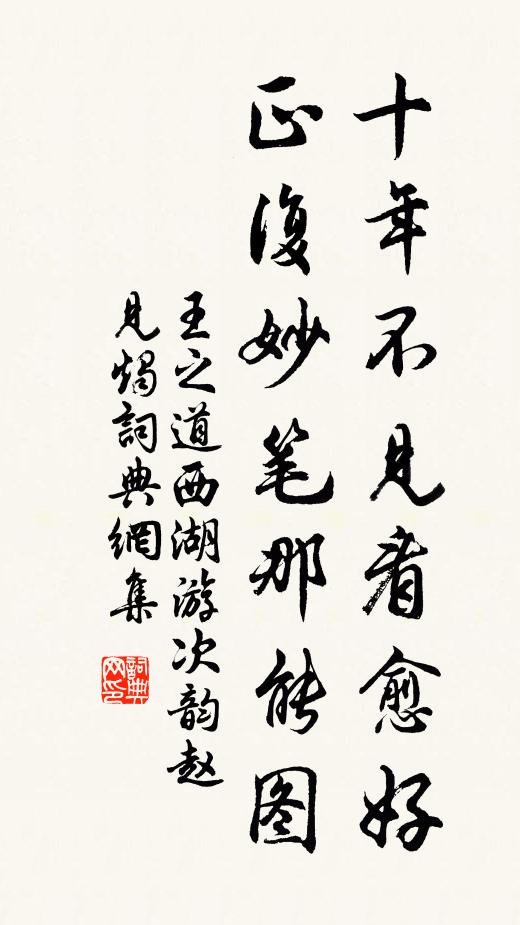 十年不见看愈好
正復妙笔那能图
王之道西湖游次韵赵
见燭詞典網集
詞典网印